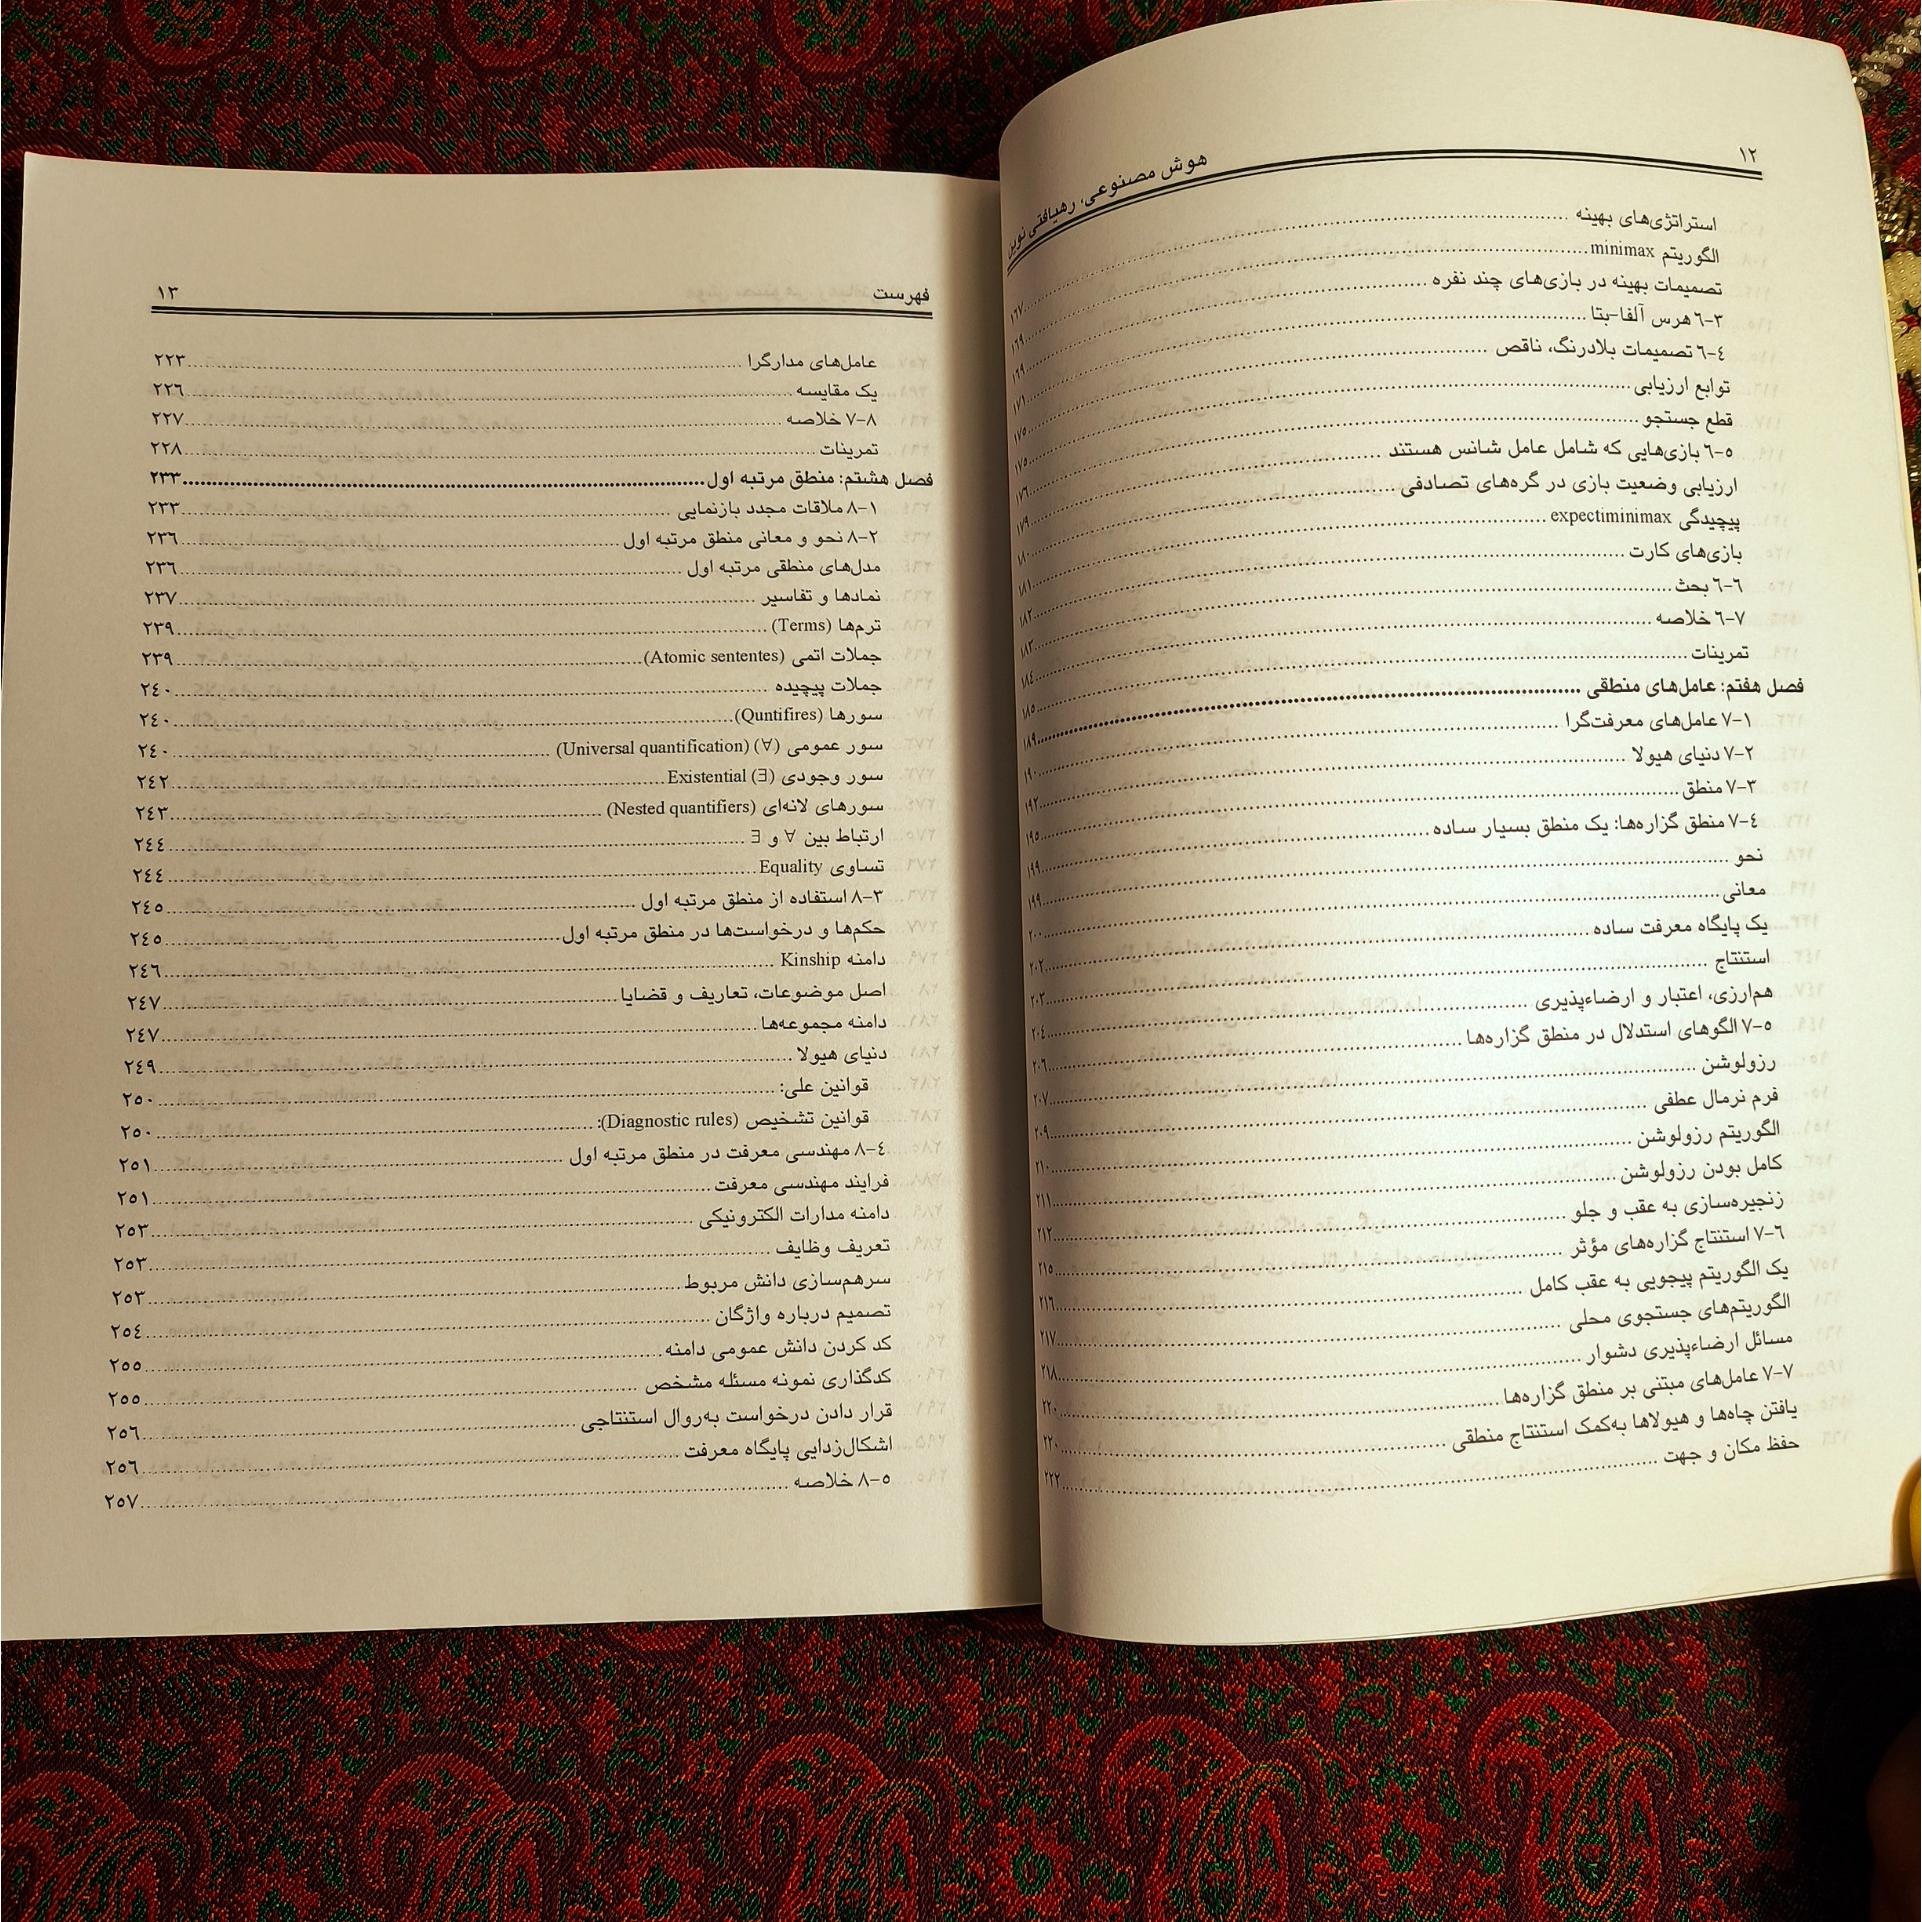 ۱۲
هوش مصنوعی، رهیافتی نوین
استراتژی‌های بهینه ........ ۱٦۷
الگوریتم minimax ........ ۱٦۹
تصمیمات بهینه در بازی‌های چند نفره ........ ۱٦۹
٦-۳ هرس آلفا-بتا ........ ۱۷۱
٦-٤ تصمیمات بلادرنگ، ناقص ........ ۱۷٥
توابع ارزیابی ........ ۱۷٥
قطع جستجو ........ ۱۷٦
٦-٥ بازی‌هایی که شامل عامل شانس هستند ........ ۱۷۹
ارزیابی وضعیت بازی در گره‌های تصادفی ........ ۱۸۰
پیچیدگی expectiminimax ........ ۱۸۱
بازی‌های کارت ........ ۱۸۲
٦-٦ بحث ........ ۱۸۳
٦-۷ خلاصه ........ ۱۸٤
تمرینات ........ ۱۸٥
فصل هفتم: عامل‌های منطقی ........ ۱۸۹
۷-۱ عامل‌های معرفت‌گرا ........ ۱۹۰
۷-۲ دنیای هیولا ........ ۱۹۲
۷-۳ منطق ........ ۱۹٥
۷-٤ منطق گزاره‌ها: یک منطق بسیار ساده ........ ۱۹۹
نحو ........ ۱۹۹
معانی ........ ۲۰۰
یک پایگاه معرفت ساده ........ ۲۰۲
استنتاج ........ ۲۰۳
هم‌ارزی، اعتبار و ارضاءپذیری ........ ۲۰٤
۷-٥ الگوهای استدلال در منطق گزاره‌ها ........ ۲۰٦
رزولوشن ........ ۲۰۷
فرم نرمال عطفی ........ ۲۰۹
الگوریتم رزولوشن ........ ۲۱۰
کامل بودن رزولوشن ........ ۲۱۱
زنجیره‌سازی به عقب و جلو ........ ۲۱۲
۷-٦ استنتاج گزاره‌های مؤثر ........ ۲۱٥
یک الگوریتم پیجویی به عقب کامل ........ ۲۱٦
الگوریتم‌های جستجوی محلی ........ ۲۱۷
مسائل ارضاءپذیری دشوار ........ ۲۱۸
۷-۷ عامل‌های مبتنی بر منطق گزاره‌ها ........ ۲۲۰
یافتن چاه‌ها و هیولاها به‌کمک استنتاج منطقی ........ ۲۲۰
حفظ مکان و جهت ........ ۲۲۲
فهرست
۱۳
عامل‌های مدارگرا ........ ۲۲۳
یک مقایسه ........ ۲۲٦
۷-۸ خلاصه ........ ۲۲۷
تمرینات ........ ۲۲۸
فصل هشتم: منطق مرتبه اول ........ ۲۳۳
۸-۱ ملاقات مجدد بازنمایی ........ ۲۳۳
۸-۲ نحو و معانی منطق مرتبه اول ........ ۲۳٦
مدل‌های منطقی مرتبه اول ........ ۲۳٦
نمادها و تفاسیر ........ ۲۳۷
ترم‌ها (Terms) ........ ۲۳۹
جملات اتمی (Atomic sententes) ........ ۲۳۹
جملات پیچیده ........ ۲٤۰
سورها (Quntifires) ........ ۲٤۰
سور عمومی (∀) (Universal quantification) ........ ۲٤۰
سور وجودی (∃) Existential ........ ۲٤۲
سورهای لانه‌ای (Nested quantifiers) ........ ۲٤۳
ارتباط بین ∀ و ∃ ........ ۲٤٤
تساوی Equality ........ ۲٤٤
۸-۳ استفاده از منطق مرتبه اول ........ ۲٤٥
حکم‌ها و درخواست‌ها در منطق مرتبه اول ........ ۲٤٥
دامنه Kinship ........ ۲٤٦
اصل موضوعات، تعاریف و قضایا ........ ۲٤۷
دامنه مجموعه‌ها ........ ۲٤۷
دنیای هیولا ........ ۲٤۹
قوانین علی: ........ ۲٥۰
قوانین تشخیص (Diagnostic rules): ........ ۲٥۰
۸-٤ مهندسی معرفت در منطق مرتبه اول ........ ۲٥۱
فرایند مهندسی معرفت ........ ۲٥۱
دامنه مدارات الکترونیکی ........ ۲٥۳
تعریف وظایف ........ ۲٥۳
سرهم‌سازی دانش مربوط ........ ۲٥۳
تصمیم درباره واژگان ........ ۲٥٤
کد کردن دانش عمومی دامنه ........ ۲٥٥
کدگذاری نمونه مسئله مشخص ........ ۲٥٥
قرار دادن درخواست به‌روال استنتاجی ........ ۲٥٦
اشکال‌زدایی پایگاه معرفت ........ ۲٥٦
۸-٥ خلاصه ........ ۲٥۷